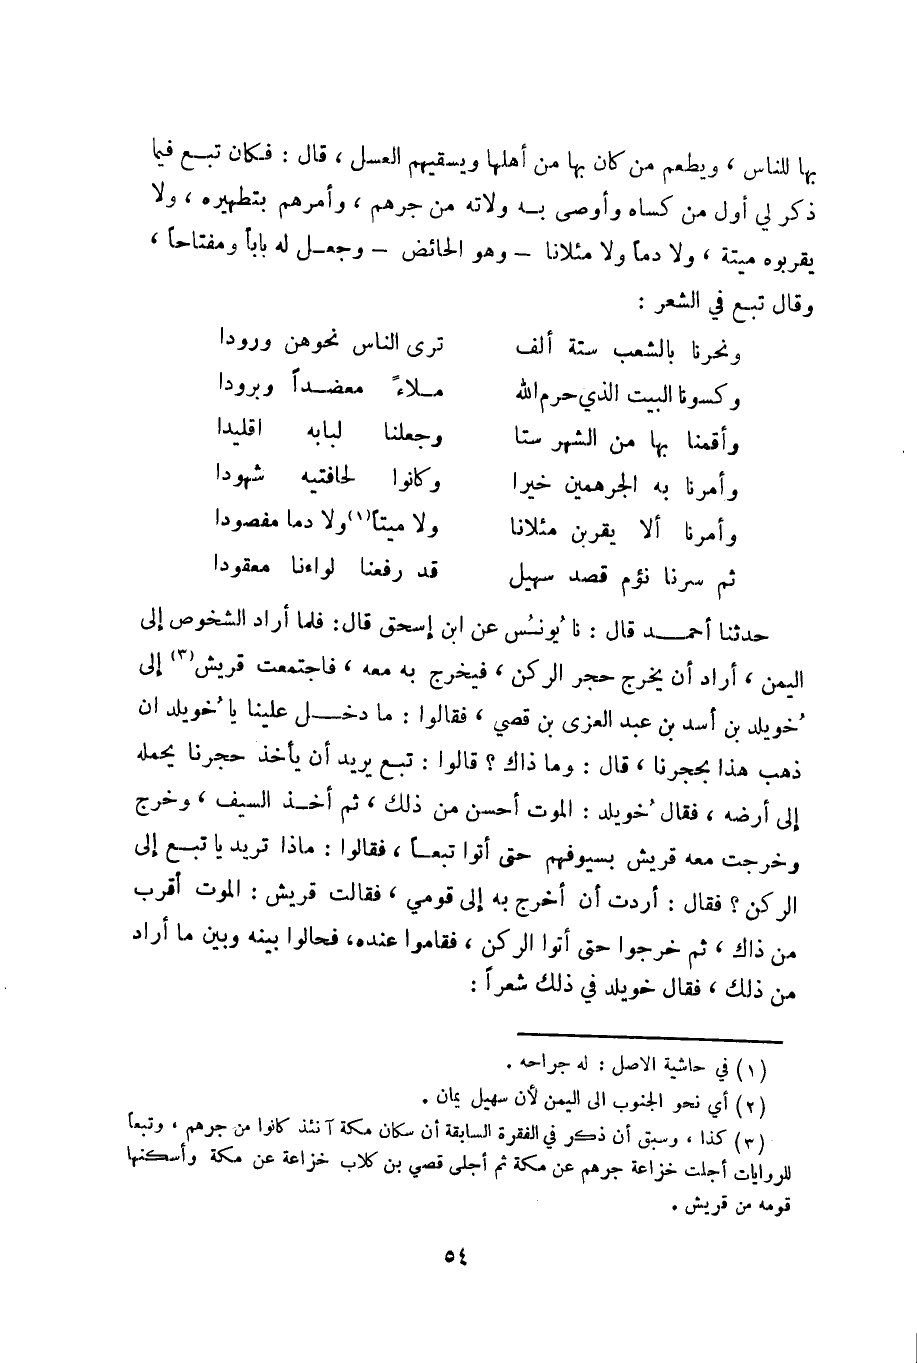 بها للناس ، ويطعم من كان بها من أهلها ويسقيهم العسل ، قال : فكان تبع فيما
ذكر لي أول من كساه وأوصى به ولاته من جرهم ، وأمرهم بتطهيره ، ولا
يقربوه ميتة ، ولا دماً ولا مئلاثا – وهو الحائض – وجعل له باباً ومفتاحاً ،
وقال تبع في الشعر :
ونحرنا بالشعب ستة ألف ترى الناس نحوهن ورودا
وكسونا البيت الذي حرم الله مــلاءً معضداً وبرودا
وأقمنا بها من الشهر ستا وجعلنا لبابه اقليدا
وأمرنا به الجرهمين خيرا وكانوا لحافتيه شهودا
وأمرنا ألا يقربن مئلاثا ولا ميتاً(١) ولا دما مفصودا
ثم سرنا نؤم قصد سهيل قد رفعنا لواءنا معقودا
حدثنا أحمد قال : نا يُونُس عن ابن إسحق قال: فلما أراد الشخوص إلى
اليمن ، أراد أن يخرج حجر الركن ، فيخرج به معه ، فاجتمعت قريش(٣) إلى
خُويلد بن أسد بن عبد العزى بن قصي ، فقالوا : ما دخل علينا يا خُويلد ان
ذهب هذا بحجرنا ، قال : وما ذاك ؟ قالوا : تبع يريد أن يأخذ حجرنا يحمله
إلى أرضه ، فقال خُويلد : الموت أحسن من ذلك ، ثم أخذ السيف ، وخرج
وخرجت معه قريش بسيوفهم حتى أتوا تبعاً ، فقالوا : ماذا تريد يا تبع إلى
الركن ؟ فقال : أردت أن أخرج به إلى قومي ، فقالت قريش : الموت أقرب
من ذاك ، ثم خرجوا حتى أتوا الركن ، فقاموا عنده، فحالوا بينه وبين ما أراد
من ذلك ، فقال خويلد في ذلك شعراً :
(١) في حاشية الاصل : له جراحه .
(٢) أي نحو الجنوب الى اليمن لأن سهيل يمان .
(٣) كذا ، وسبق أن ذكر في الفقرة السابقة أن سكان مكة آنئذ كانوا من جرهم ، وتبعاً
للروايات أجلت خزاعة جرهم عن مكة ثم أجلى قصي بن كلاب خزاعة عن مكة وأسكنها
قومه من قريش .
٥٤